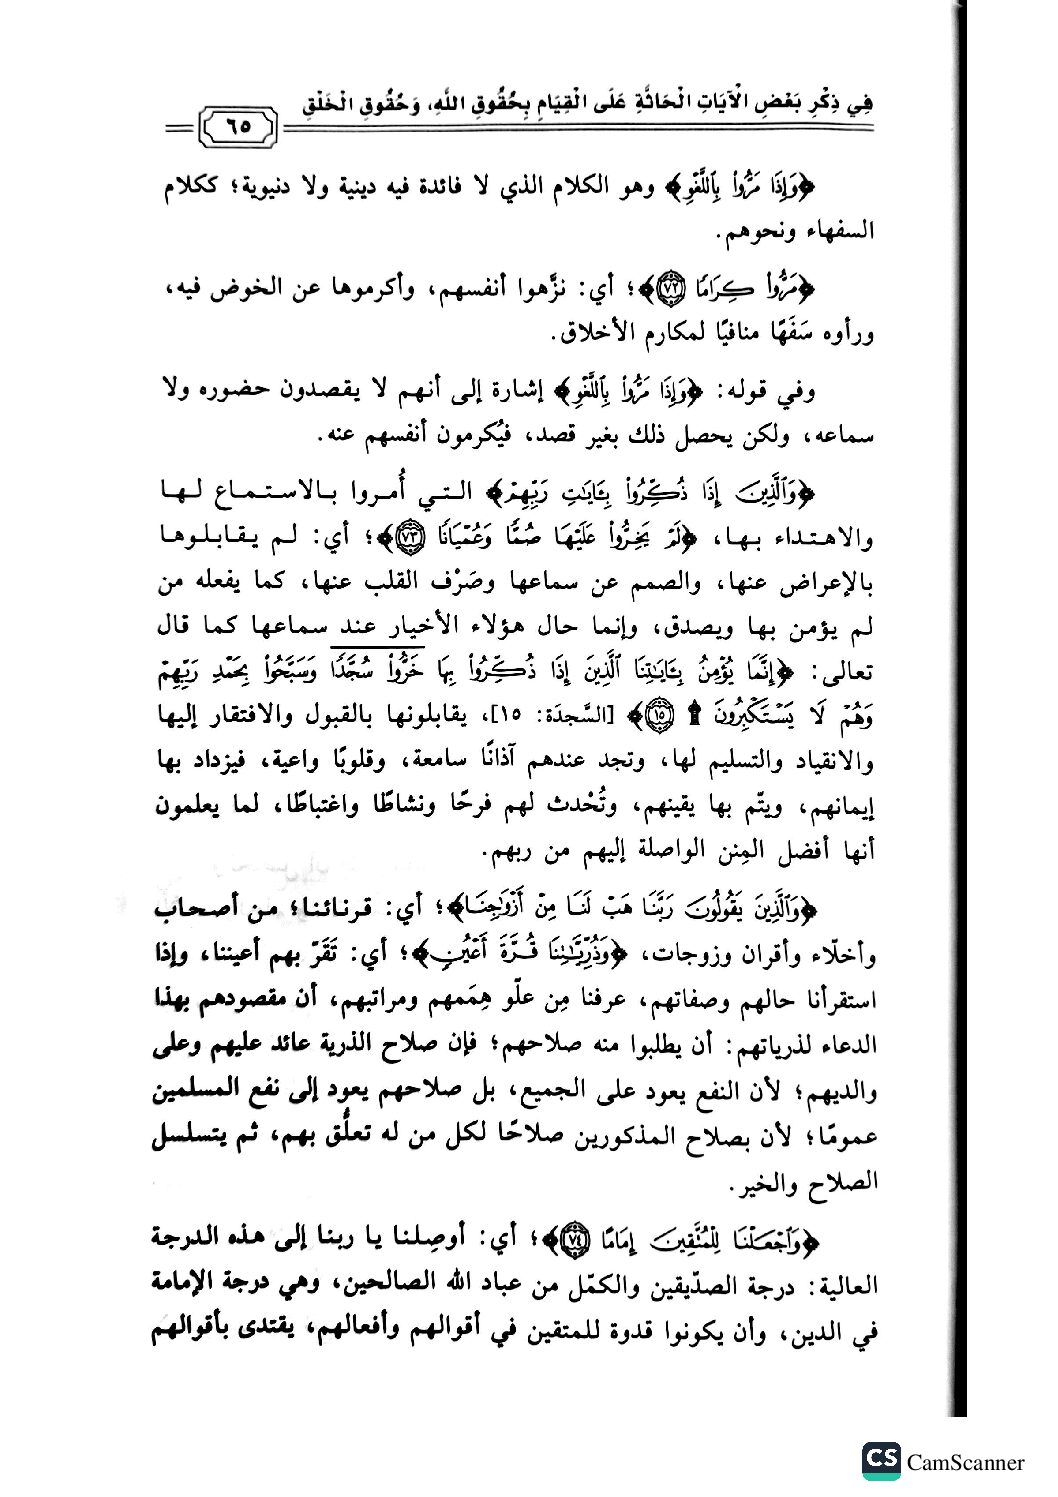 فِي ذِكْرِ بَعْضِ الْآيَاتِ الْحَاثَّةِ عَلَى الْقِيَامِ بِحُقُوقِ اللَّهِ، وَحُقُوقِ الْخَلْقِ
٦٥
﴿وَإِذَا مَرُّوا۟ بِٱللَّغْوِ﴾ وهو الكلام الذي لا فائدة فيه دينية ولا دنيوية؛ ككلام
السفهاء ونحوهم.
﴿مَرُّوا۟ كِرَامًا ٧٢﴾؛ أي: نزَّهوا أنفسهم، وأكرموها عن الخوض فيه،
ورأوه سَفَهًا منافيًا لمكارم الأخلاق.
وفي قوله: ﴿وَإِذَا مَرُّوا۟ بِٱللَّغْوِ﴾ إشارة إلى أنهم لا يقصدون حضوره ولا
سماعه، ولكن يحصل ذلك بغير قصد، فيُكرمون أنفسهم عنه.
﴿وَٱلَّذِينَ إِذَا ذُكِّرُوا۟ بِـَٔايَٰتِ رَبِّهِمْ﴾ التي أُمروا بالاستماع لها
والاهتداء بها، ﴿لَمْ يَخِرُّوا۟ عَلَيْهَا صُمًّا وَعُمْيَانًا ٧٣﴾؛ أي: لم يقابلوها
بالإعراض عنها، والصمم عن سماعها وصَرْف القلب عنها، كما يفعله من
لم يؤمن بها ويصدق، وإنما حال هؤلاء الأخيار عند سماعها كما قال
تعالى: ﴿إِنَّمَا يُؤْمِنُ بِـَٔايَٰتِنَا ٱلَّذِينَ إِذَا ذُكِّرُوا۟ بِهَا خَرُّوا۟ سُجَّدًا وَسَبَّحُوا۟ بِحَمْدِ رَبِّهِمْ
وَهُمْ لَا يَسْتَكْبِرُونَ ۩ ١٥﴾ [السَّجدَة: ١٥]، يقابلونها بالقبول والافتقار إليها
والانقياد والتسليم لها، وتجد عندهم آذانًا سامعة، وقلوبًا واعية، فيزداد بها
إيمانهم، ويتّم بها يقينهم، وتُحْدث لهم فرحًا ونشاطًا واغتباطًا، لما يعلمون
أنها أفضل المِنن الواصلة إليهم من ربهم.
﴿وَٱلَّذِينَ يَقُولُونَ رَبَّنَا هَبْ لَنَا مِنْ أَزْوَٰجِنَا﴾؛ أي: قرنائنا؛ من أصحاب
وأخلّاء وأقران وزوجات، ﴿وَذُرِّيَّٰتِنَا قُرَّةَ أَعْيُنٍ﴾؛ أي: تَقَرّ بهم أعيننا، وإذا
استقرأنا حالهم وصفاتهم، عرفنا مِن علّو هِمَمهم ومراتبهم، أن مقصودهم بهذا
الدعاء لذرياتهم: أن يطلبوا منه صلاحهم؛ فإن صلاح الذرية عائد عليهم وعلى
والديهم؛ لأن النفع يعود على الجميع، بل صلاحهم يعود إلى نفع المسلمين
عمومًا؛ لأن بصلاح المذكورين صلاحًا لكل من له تعلُّق بهم، ثم يتسلسل
الصلاح والخير.
﴿وَٱجْعَلْنَا لِلْمُتَّقِينَ إِمَامًا ٧٤﴾؛ أي: أوصِلنا يا ربنا إلى هذه الدرجة
العالية: درجة الصدّيقين والكمّل من عباد الله الصالحين، وهي درجة الإمامة
في الدين، وأن يكونوا قدوة للمتقين في أقوالهم وأفعالهم، يقتدى بأقوالهم
CS CamScanner